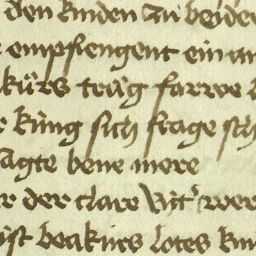 den kinden zu beider
empfiengent ein an
kurs tråg farwe
küng sich frage
sagte bene mere
der clare vit' wer
ist beakurs lotes kin